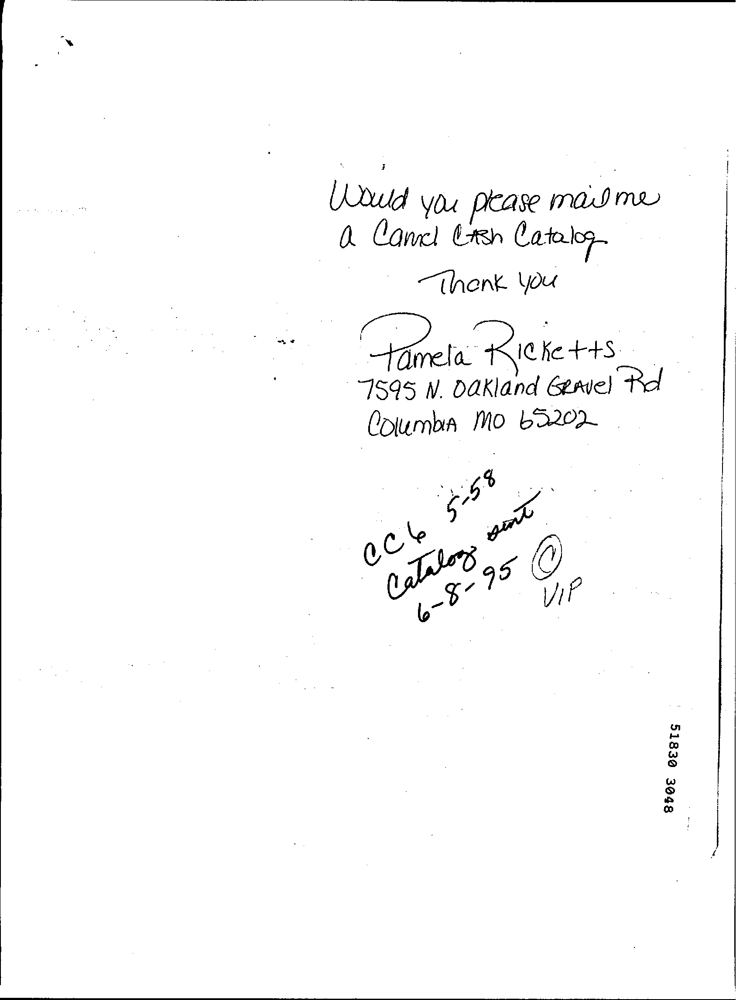 Would you please mail me
a Camel Cash Catalog
Thank you
Pamela Ricketts
7595 N. Oakland Gravel Rd
Columbia MO 65202
CC6 5-58
Catalog sent
6-8-95 ©
VIP
51830 3048